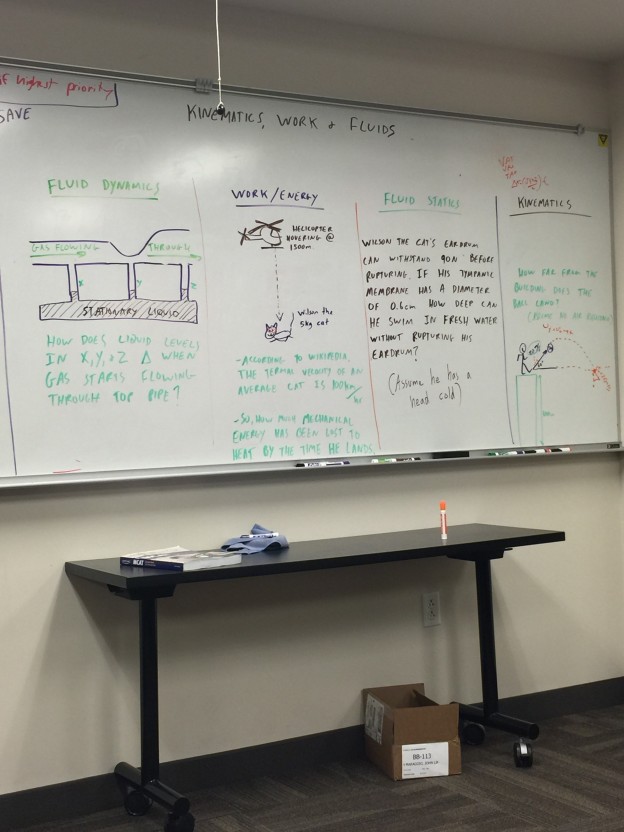 of highest priority
SAVE
KINEMATICS, WORK + FLUIDS
FLUID DYNAMICS
GAS FLOWING THROUGH
X Y Z
STATIONARY LIQUID
HOW DOES LIQUID LEVELS
IN X, Y, + Z Δ WHEN
GAS STARTS FLOWING
THROUGH TOP PIPE?
WORK/ENERGY
HELICOPTER
HOVERING @
1500m
Wilson the
sky cat
-ACCORDING TO WIKIPEDIA,
THE TERMAL VELOCITY OF AN
AVERAGE CAT IS 100km/hr
-SO, HOW MUCH MECHANICAL
ENERGY HAS BEEN LOST TO
HEAT BY THE TIME HE LANDS
FLUID STATICS
WILSON THE CAT'S EARDRUM
CAN WITHSTAND 90N BEFORE
RUPTURING. IF HIS TYMPANIC
MEMBRANE HAS A DIAMETER
OF 0.6cm HOW DEEP CAN
HE SWIM IN FRESH WATER
WITHOUT RUPTURING HIS
EARDRUM?
(Assume he has a
head cold)
KINEMATICS
HOW FAR FROM THE
BUILDING DOES THE
BALL LAND?
MCAT
BB-113